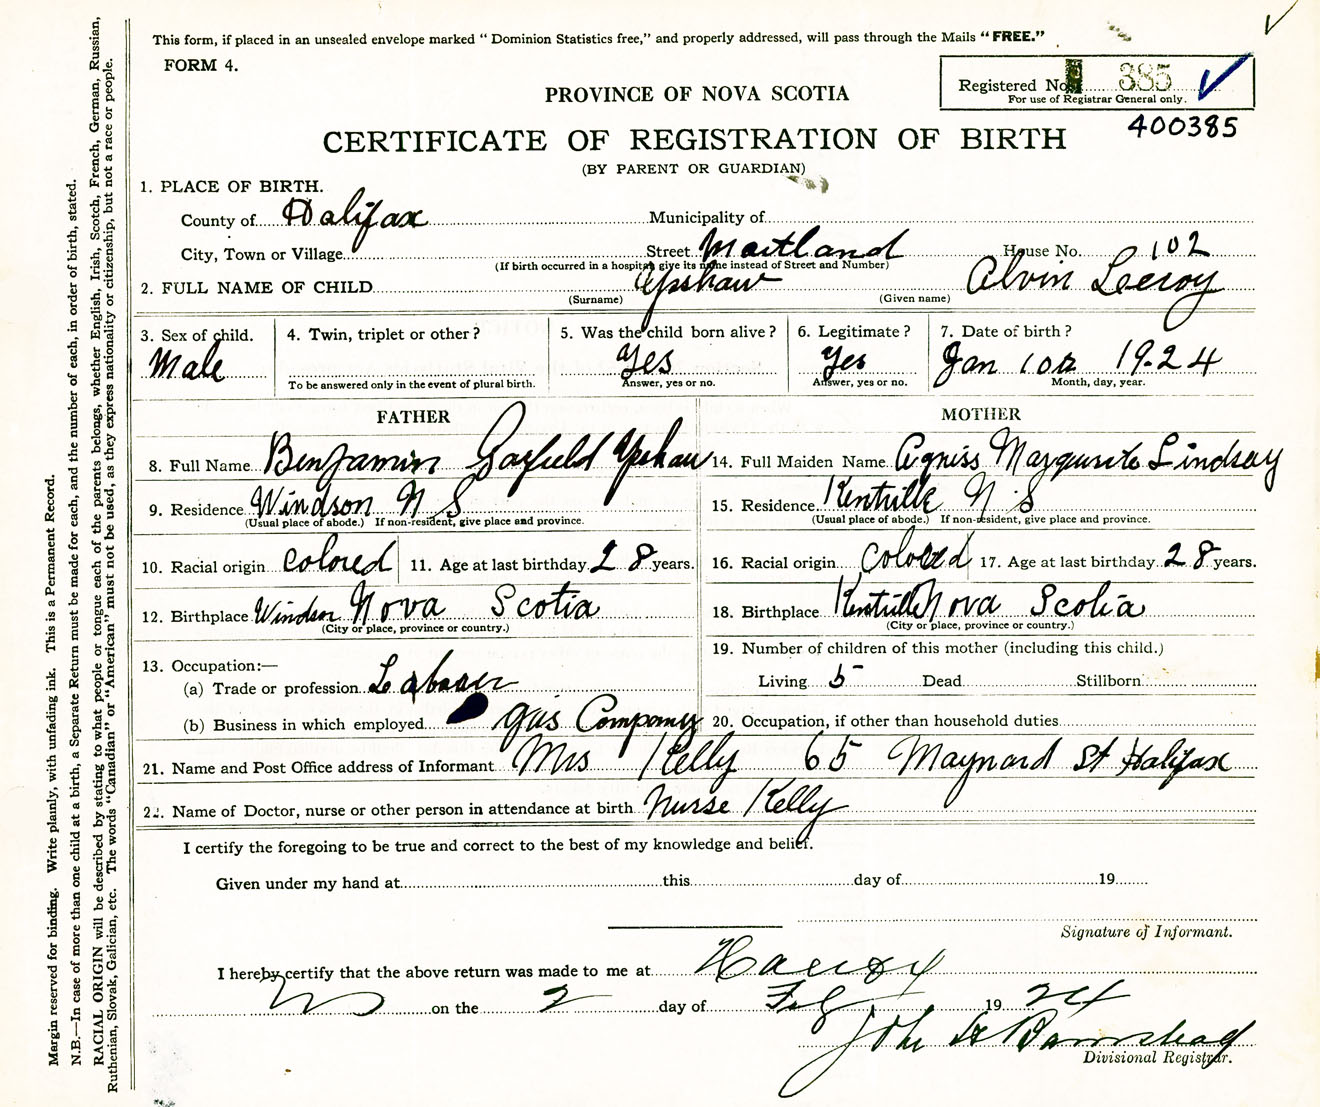 This form, if placed in an unsealed envelope marked “ Dominion Statistics free,” and properly addressed, will pass through the Mails “ FREE.”
FORM 4.
Registered No. 385
For use of Registrar General only.
PROVINCE OF NOVA SCOTIA
400385
CERTIFICATE OF REGISTRATION OF BIRTH
(BY PARENT OR GUARDIAN)
1. PLACE OF BIRTH.
County of Halifax Municipality of
City, Town or Village Street Maitland House No. 102
(If birth occurred in a hospital give its name instead of Street and Number)
2. FULL NAME OF CHILD Upshaw Alvin Leeroy
(Surname) (Given name)
3. Sex of child. 4. Twin, triplet or other ? 5. Was the child born alive ? 6. Legitimate ? 7. Date of birth ?
Male Yes Yes Jan 10th 1924
To be answered only in the event of plural birth. Answer, yes or no. Answer, yes or no. Month, day, year.
FATHER MOTHER
8. Full Name Benjamin Garfield Upshaw 14. Full Maiden Name Agniss Marguerite Lindsay
9. Residence Windson N S 15. Residence Kentville N S
(Usual place of abode.) If non-resident, give place and province. (Usual place of abode.) If non-resident, give place and province.
10. Racial origin colored 11. Age at last birthday 28 years. 16. Racial origin colored 17. Age at last birthday 28 years.
12. Birthplace Windsor Nova Scotia 18. Birthplace Kentville Nova Scotia
(City or place, province or country.) (City or place, province or country.)
13. Occupation:— 19. Number of children of this mother (including this child.)
(a) Trade or profession Labourer Living 5 Dead Stillborn
(b) Business in which employed gas Company 20. Occupation, if other than household duties
21. Name and Post Office address of Informant Mrs Kelly 65 Maynard St Halifax
22. Name of Doctor, nurse or other person in attendance at birth Nurse Kelly
I certify the foregoing to be true and correct to the best of my knowledge and belief.
Given under my hand at this day of 19
Signature of Informant.
I hereby certify that the above return was made to me at Halifax
NS on the 2 day of Feb 1924
John
Divisional Registrar.
Margin reserved for binding. Write plainly, with unfading ink. This is a Permanent Record.
N.B.—In case of more than one child at a birth, a Separate Return must be made for each, and the number of each, in order of birth, stated.
RACIAL ORIGIN will be described by stating to what people or tongue each of the parents belongs, whether English, Irish, Scotch, French, German, Russian,
Ruthenian, Slovak, Galician, etc. The words “Canadian” or “American” must not be used, as they express nationality or citizenship, but not a race or people.